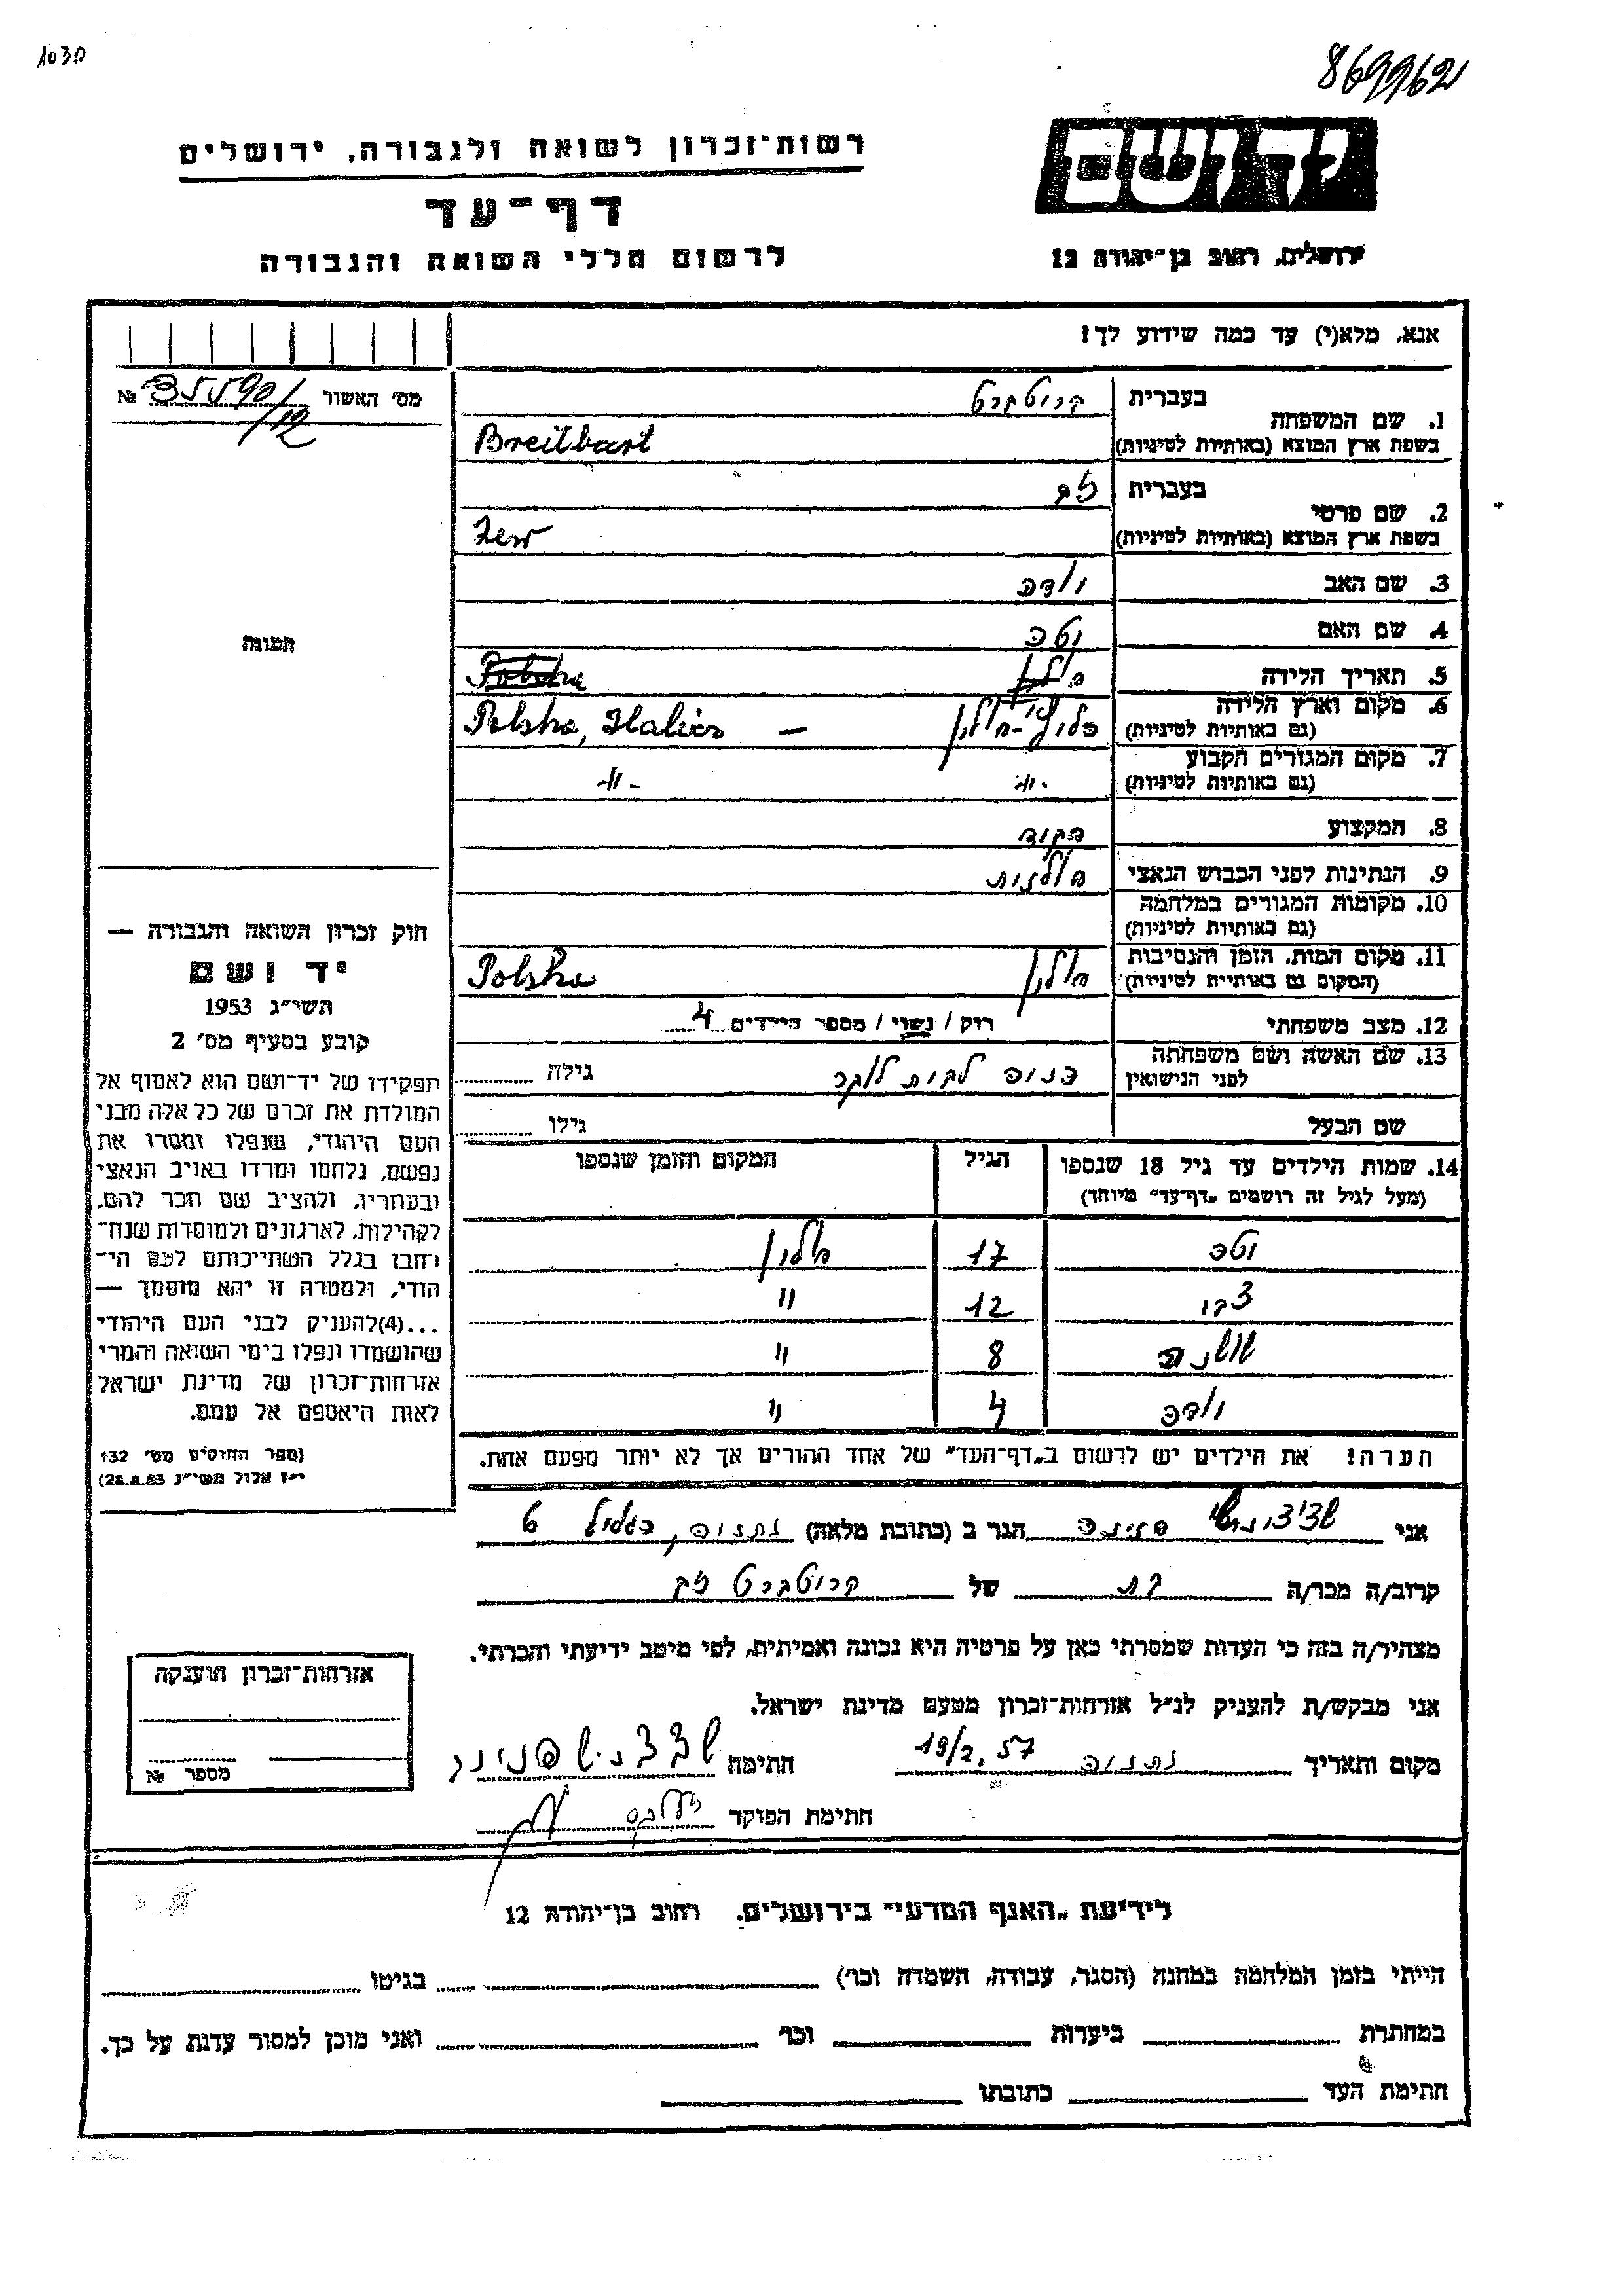 869962
רשות־זכרון לשואה ולגבורה, ירושלים
יד ושם
דף־עד
לרשום חללי השואה והגבורה
ירושלים, רחוב בן־יהודה 12
אנא, מלא(י) עד כמה שידוע לך!
מס׳ האשור № 35590/12
1. שם המשפחה
בעברית
בשפת ארץ המוצא (באותיות לטיניות) Breitbart
2. שם פרטי
בעברית זב
בשפת ארץ המוצא (באותיות לטיניות) Zew
3. שם האב
4. שם האם יטה
5. תאריך הלידה
6. מקום וארץ הלידה
(גם באותיות לטיניות) Polska,
7. מקום המגורים הקבוע
(גם באותיות לטיניות) -״- -״-
8. המקצוע
9. הנתינות לפני הכבוש הנאצי פולנית
10. מקומות המגורים במלחמה
(גם באותיות לטיניות)
11. מקום המות, הזמן והנסיבות
(המקום גם באותיות לטיניות) פולין Polska
12. מצב משפחתי רוק / נשוי / מספר הילדים 4
13. שם האשה ושם משפחתה
לפני הנישואין לבית גילה
שם הבעל גילו
14. שמות הילדים עד גיל 18 שנספו הגיל המקום והזמן שנספו
(מעל לגיל זה רושמים „דף־עד״ מיוחד)
יטה 17 פולין
צבי 12 ״
שושנה 8 ״
4 ״
הערה! את הילדים יש לרשום ב„דף־העד״ של אחד ההורים אך לא יותר מפעם אחת.
תמונה
חוק זכרון השואה והגבורה —
יד ושם
תשי״ג 1953
קובע בסעיף מס׳ 2
תפקידו של יד־ושם הוא לאסוף אל
המולדת את זכרם של כל אלה מבני
העם היהודי, שנפלו ומסרו את
נפשם, נלחמו ומרדו באויב הנאצי
ובעוזריו, ולהציב שם וזכר להם,
לקהילות, לארגונים ולמוסדות שנח־
רובו בגלל השתייכותם לעם הי־
הודי, ולמטרה זו יהא מוסמך —
...(4)להעניק לבני העם היהודי
שהושמדו ונפלו בימי השואה והמרי
אזרחות־זכרון של מדינת ישראל
לאות היאספם אל עמם.
(ספר החוקים מס׳ 132
י״ז אלול תשי״ג 28.8.53)
אני פנינה הגר ב (כתובת מלאה) נתניה, 6
קרוב/ה מכר/ה בת של זב
מצהיר/ה בזה כי העדות שמסרתי כאן על פרטיה היא נכונה ואמיתית, לפי מיטב ידיעתי והכרתי.
אני מבקש/ת להעניק לנ״ל אזרחות־זכרון מטעם מדינת ישראל.
מקום ותאריך נתניה 19/2.57 חתימה
חתימת הפוקד
אזרחות־זכרון הוענקה
מספר №
לידיעת „האגף המדעי״ בירושלים. רחוב בן־יהודה 12
הייתי בזמן המלחמה במחנה (הסגר, עבודה, השמדה וכו׳) בגיטו
במחתרת ביערות וכו׳ ואני מוכן למסור עדות על כך.
חתימת העד כתובתו